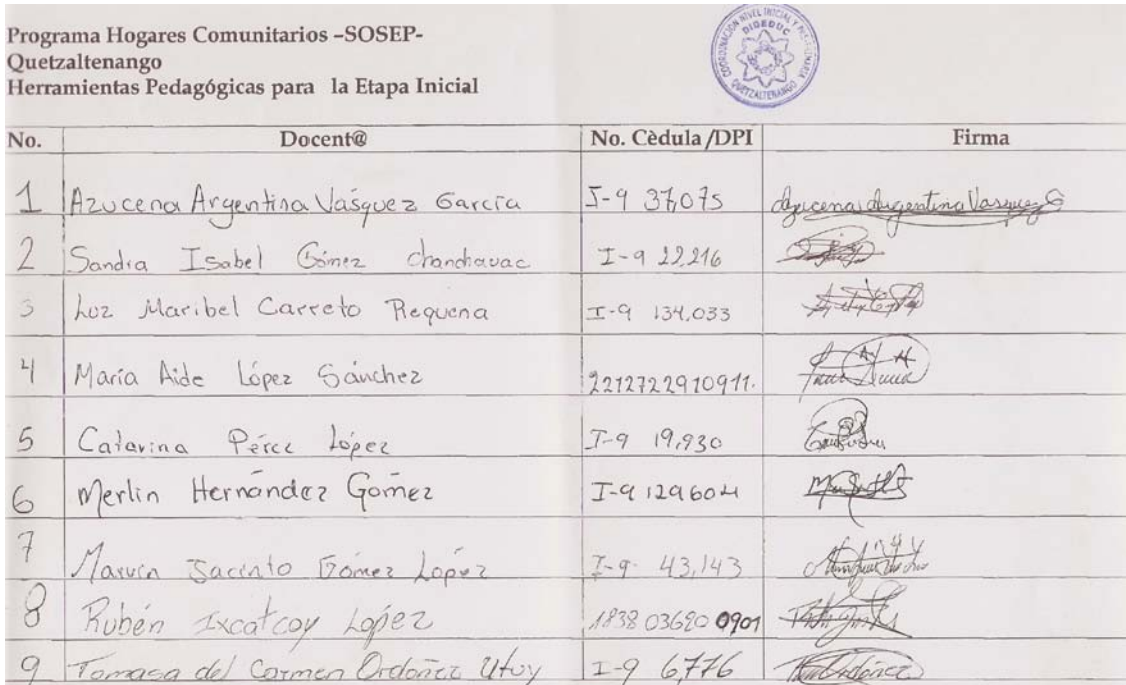 Programa Hogares Comunitarios –SOSEP-
Quetzaltenango
Herramientas Pedagógicas para la Etapa Inicial
COORDINACIÓN NIVEL INICIAL Y
DIDEDUC
QUETZALTENANGO
No. Docent@ No. Cèdula /DPI Firma
1 Azucena Argentina Vásquez García I-9 37,075 Azucena Argentina Vasquez G
2 Sandra Isabel Gómez Chanchavac I-9 22,216
3 Luz Maribel Carreto Requena I-9 134,033
4 María Aide López Sánchez 2212722910911.
5 Catarina Pérez López I-9 19,930
6 Merlin Hernández Gómez I-9 129604
7 Marvin Jacinto Gómez López I-9 43,143
8 Rubén Ixcatcoy López 1838 03620 0901
9 Tomasa del Carmen Ordoñez Utuy I-9 6,776